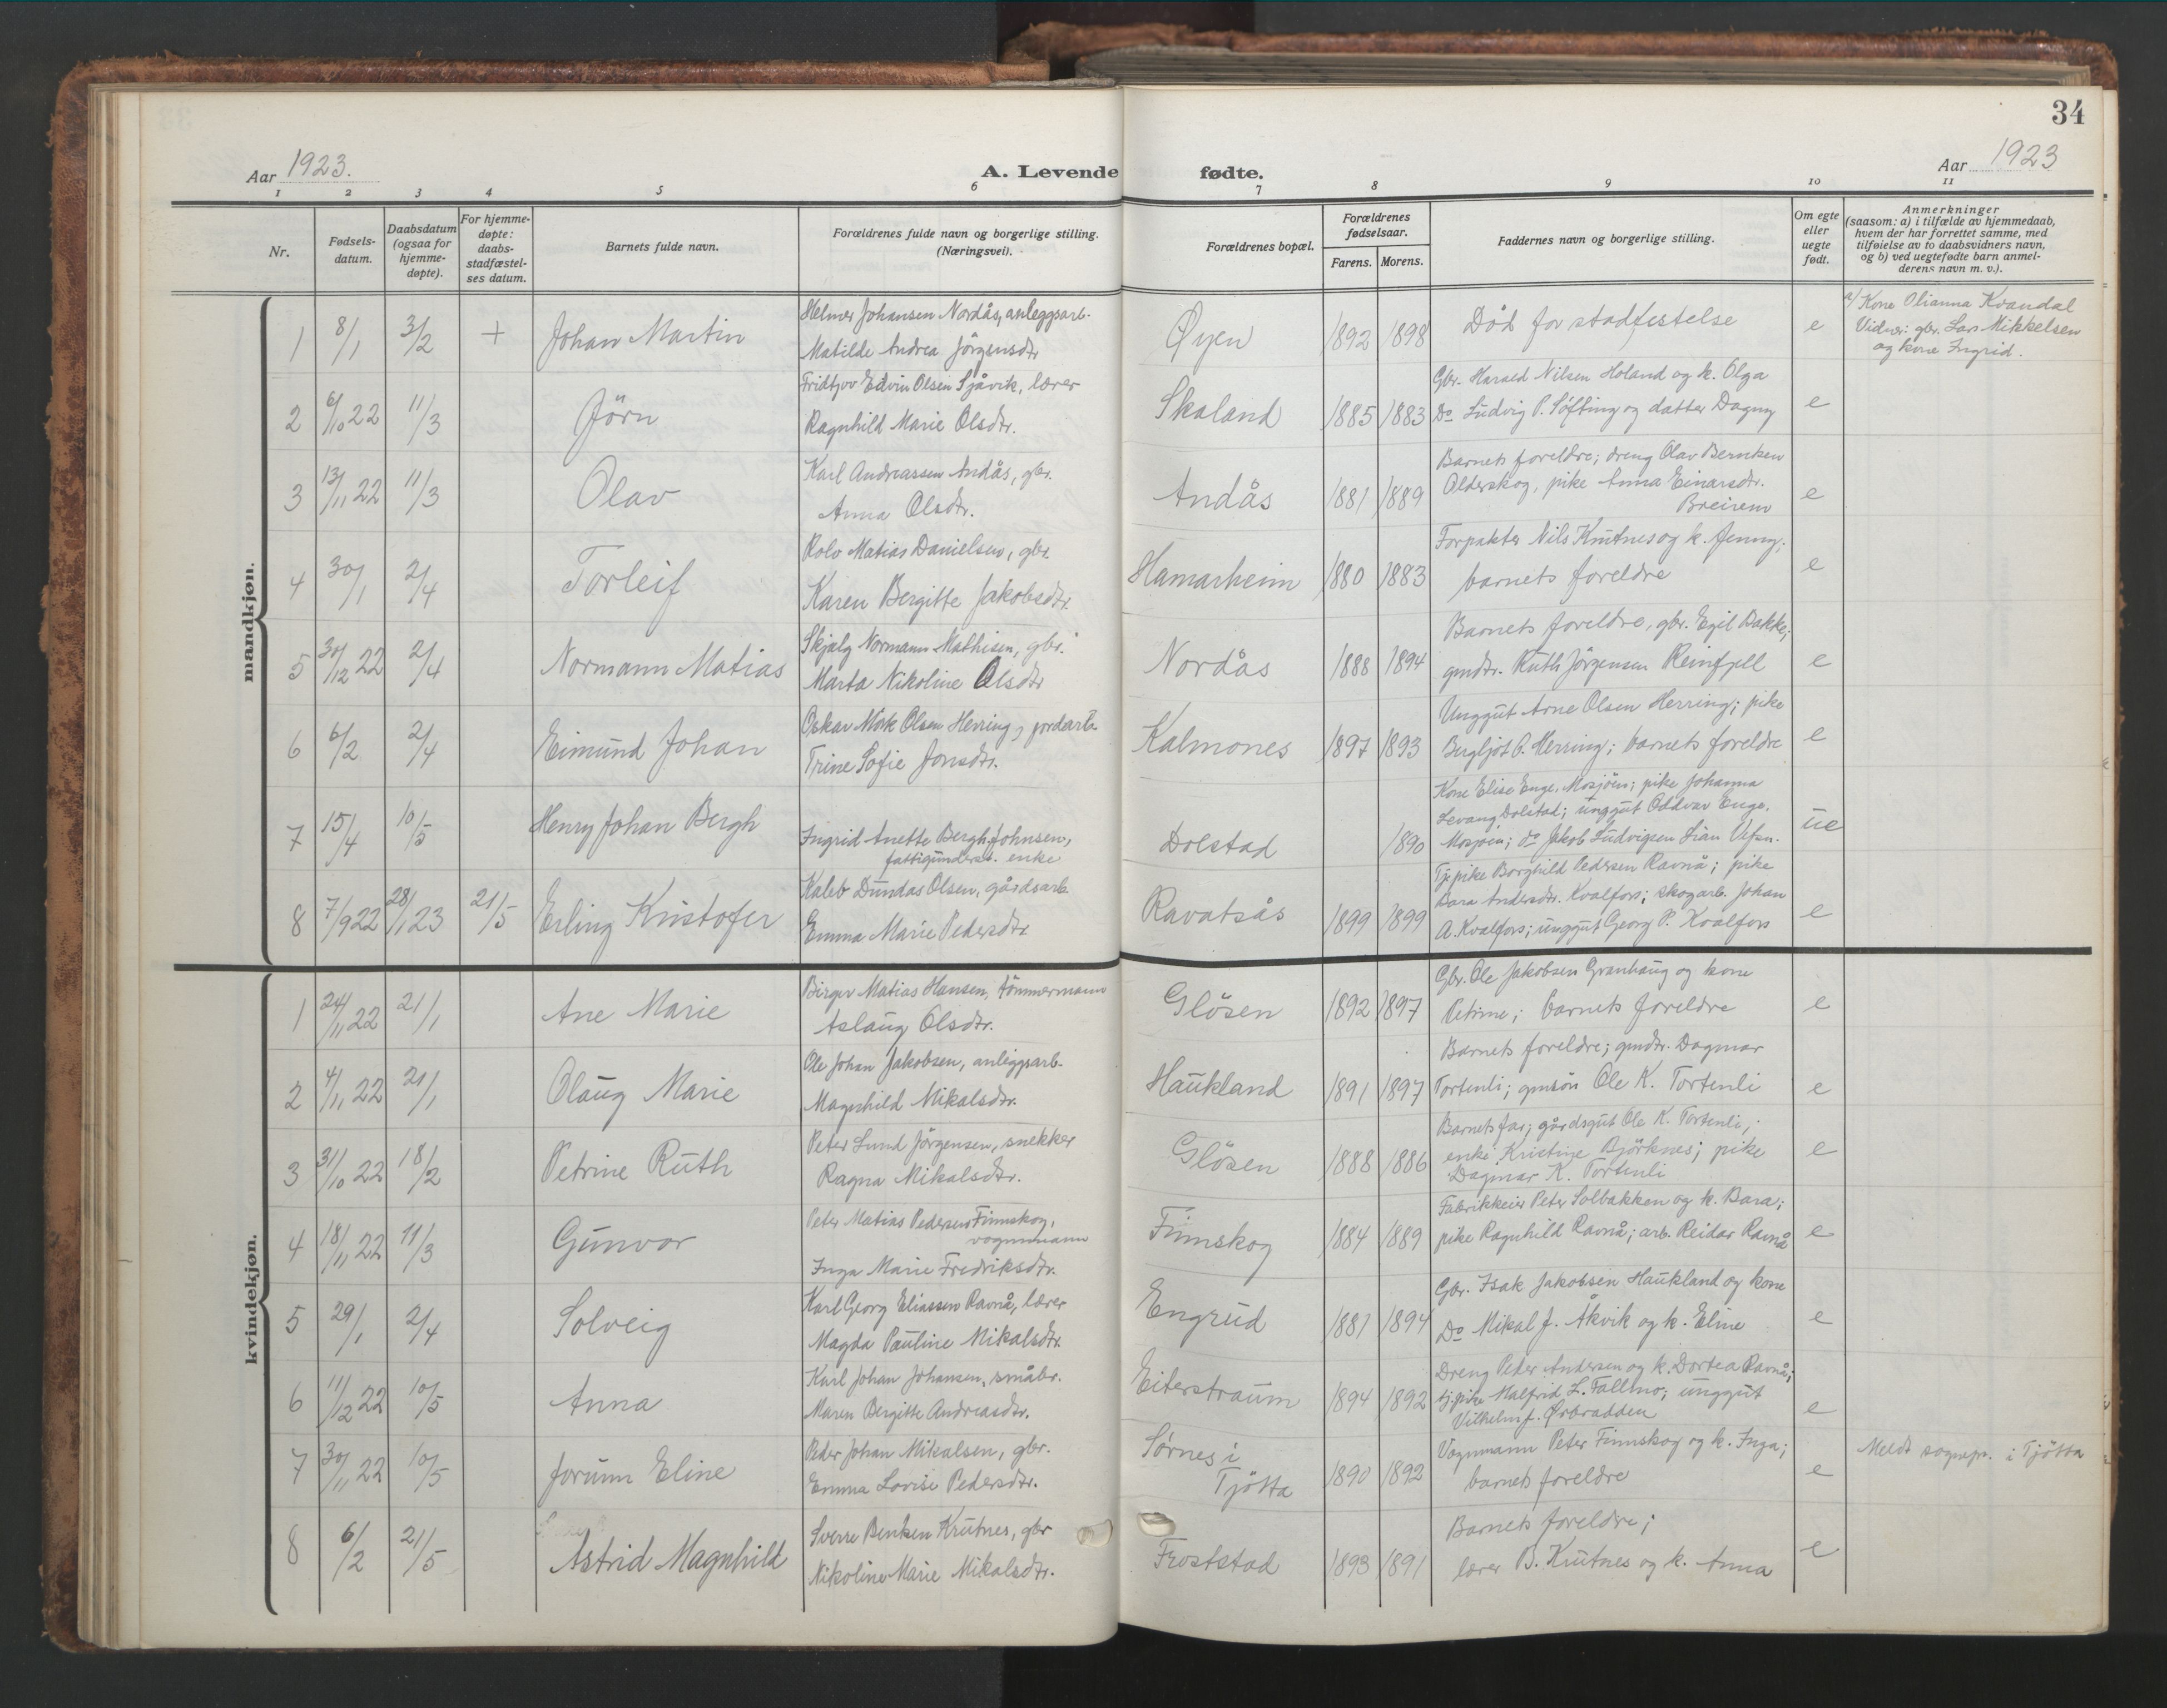 34
Aar 1923.
A. Levende fødte.
Aar 1923
1 2 3 4 5 6 7 8 9 10 11
Nr.
Fødsels-
datum.
Daabsdatum
(ogsaa for
hjemme-
døpte).
For hjemme-
døpte:
daabs-
stadfæstel-
ses datum.
Barnets fulde navn.
Forældrenes fulde navn og borgerlige stilling.
(Næringsvei).
Forældrenes bopæl.
Forældrenes
fødselsaar.
Farens. Morens.
Faddernes navn og borgerlige stilling.
Om egte
eller
uegte
født.
Anmerkninger
(saasom: a) i tilfælde av hjemmedaab,
hvem der har forrettet samme, med
tilføielse av to daabsvidners navn,
og b) ved uegtefødte barn anmel-
derens navn m. v.).
mandkjøn.
1 8/1 3/2 + Johan Martin
Helmer Johansen Nordås, anleggsarb.
Matilde Andrea Jörgensdtr
Øyen 1892 1898
Död for stadfestelse
e
a/ Kone Olianna Kvandal
Vidner: gbr. Lars Mikkelsen
og kone Ingrid.
2 6/10 22 11/3 Jörn
Fridtjov Edvin Olsen Sjåvik, lærer
Ragnhild Marie Olsdtr.
Skaland 1885 1883
Gbr. Harald Nilsen Holand og k. Olga
Do Ludvig P. Söfting og datter Dagny
e
3 13/11 22 11/3 Olav
Karl Andreassen Andås, gbr.
Anna Olsdtr.
Andås 1881 1889
Barnets foreldre; dreng Olav Berntsen
Olderskog, pike Anna Einarsdtr.
Breirem
e
4 30/1 2/4 Torleif
Rolv Matias Danielsen, gbr.
Karen Bergitte Jakobsdtr.
Hamarheim 1880 1883
Forpakter Nils Krutnes og k. Jenny;
barnets foreldre
e
5 30/12 22 2/4 Normann Matias
Skjalg Normann Mathisen, gbr.
Marta Nikoline Olsdtr
Nordås 1888 1894
Barnets foreldre, gbr. Egil Bakke;
gmdtr. Ruth Jörgensen Reinfjell
e
6 6/2 2/4 Eimund Johan
Oskar Mörk Olsen Herring, jordarb.
Trine Sofie Jonsdtr.
Kalmones 1897 1893
Unggut Arne Olsen Herring; pike
Bergljot O. Herring; barnets foreldre
e
7 15/4 10/5 Henry Johan Bergh
Ingrid Anette Bergh Johnsen,
fattigunderst. enke
Dolstad 1890
Kone Elise Enge, Mosjöen; pike Johanna
Levang Dolstad; unggut Oddvar Enge,
Mosjöen; do Jakob Ludvigsen Lian Vefsn.
ue
8 7/9 22 28/1 23 21/5 Erling Kristofer
Kaleb Dundas Olsen, gårdsarb.
Emma Marie Pedersdtr
Ravatsås 1899 1899
Tj.pike Borghild Pedersen Ravnå; pike
Bara Andersdtr. Kvalfors; skogarb. Johan
A. Kvalfors; unggut Georg P. Kvalfors
e
kvindekjøn.
1 24/11 22 21/1 Ane Marie
Birger Matias Hansen, tömmermann
Aslaug Olsdtr.
Glösen 1892 1897
Gbr. Ole Jakobsen Granhaug og kone
Petrine; barnets foreldre
e
2 4/11 22 21/1 Olaug Marie
Ole Johan Jakobsen, anleggsarb.
Magnhild Mikalsdtr.
Haukland 1891 1897
Barnets foreldre; gmdtr. Dagmar
Tortenli; gmsön Ole K. Tortenli
e
3 31/10 22 18/2 Petrine Ruth
Peter Lund Jörgensen, snekker
Ragna Mikalsdtr.
Glösen 1888 1886
Barnets far; gårdsgut Ole K. Tortenli,
enke Kristine Björknes; pike
Dagmar K. Tortenli
e
4 18/11 22 11/3 Gunvor
Peter Matias Pedersen Finnskog,
vognmann
Inga Marie Fredriksdtr.
Finnskog 1884 1889
Fabrikkeier Peter Solbakken og k. Bara;
pike Ragnhild Ravnå; arb. Reidar Ravnå
e
5 29/1 2/4 Solveig
Karl Georg Eliassen Ravnå, lærer
Magda Pauline Mikalsdtr.
Engrud 1881 1894
Gbr. Isak Jakobsen Haukland og kone
Do Mikal J. Åkvik og k. Eline
e
6 11/12 22 10/5 Anna
Karl Johan Johansen, småbr.
Maren Bergitte Andreasdtr.
Eiterstraum 1894 1892
Dreng Peter Andersen og k. Dortea Ravnå;
tj.pike Malfrid L. Fallmo; unggut
Vilhelm J. Örbradden
e
7 30/11 22 10/5 Jorunn Eline
Peder Johan Mikalsen, gbr.
Emma Lovise Pedersdtr.
Sörnes i
Tjötta
1890 1892
Vognmann Peter Finnskog og k. Inga;
barnets foreldre
e
Meldt sognepr. i Tjötta
8 6/2 21/5 Astrid Magnhild
Sverre Bentsen Krutnes, gbr
Nikoline Marie Mikalsdtr.
Froststad 1893 1891
Barnets foreldre;
lærer B. Krutnes og k. Anna
e